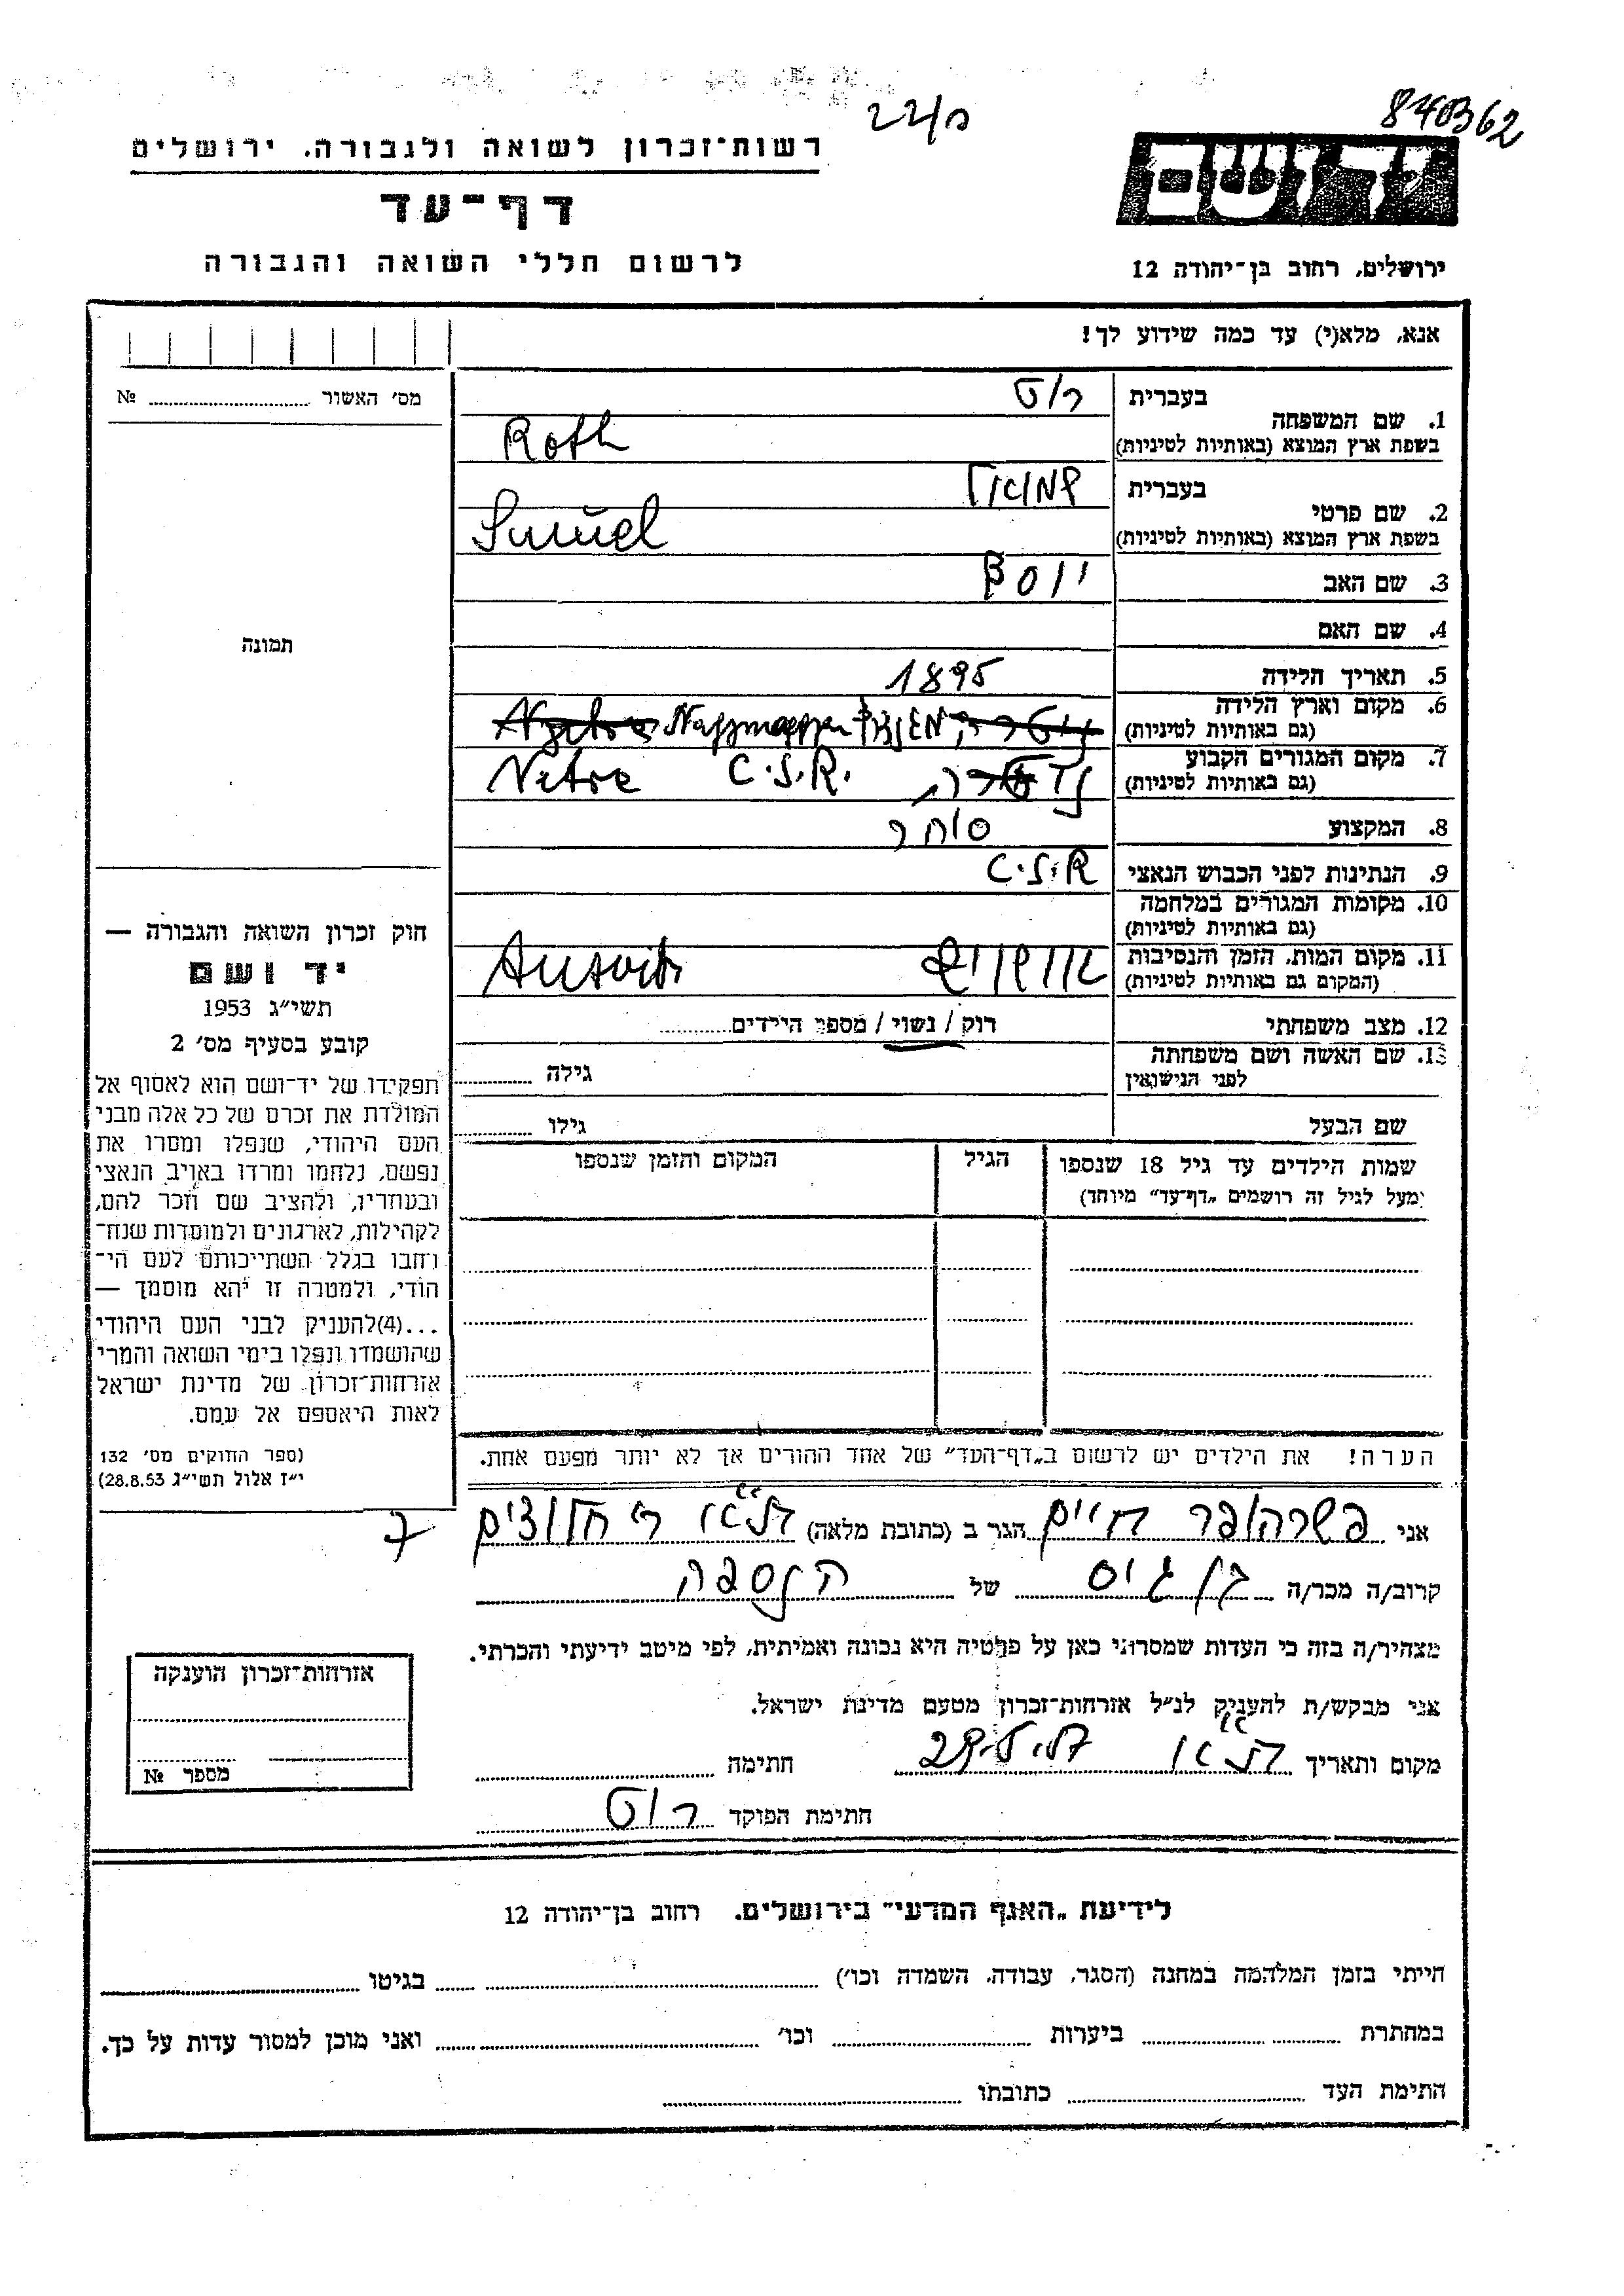 840362
22/ס
רשות־זכרון לשואה ולגבורה. ירושלים
דף־עד
לרשום חללי השואה והגבורה
יד ושם
ירושלים, רחוב בן־יהודה 12
אנא, מלא(י) עד כמה שידוע לך!
מס׳ האשור № 
בעברית רוט
1. שם המשפחה
בשפת ארץ המוצא (באותיות לטיניות) Roth
בעברית שמואל
2. שם פרטי
בשפת ארץ המוצא (באותיות לטיניות) Samuel
3. שם האב יוסף
4. שם האם
5. תאריך הלידה 1895
6. מקום וארץ הלידה
(גם באותיות לטיניות)
7. מקום המגורים הקבוע
(גם באותיות לטיניות) C.S.R. 
8. המקצוע סוחר
9. הנתינות לפני הכבוש הנאצי C.S.R
10. מקומות המגורים במלחמה
(גם באותיות לטיניות)
11. מקום המות, הזמן והנסיבות
(המקום גם באותיות לטיניות) אושויץ
12. מצב משפחתי רוק / נשוי / מספר הילדים
13. שם האשה ושם משפחתה
לפני הנישואין גילה
שם הבעל גילו
שמות הילדים עד גיל 18 שנספו הגיל המקום והזמן שנספו
(מעל לגיל זה רושמים „דף־עד״ מיוחד)
הערה! את הילדים יש לרשום ב„דף־העד״ של אחד ההורים אך לא יותר מפעם אחת.
תמונה
חוק זכרון השואה והגבורה —
יד ושם
תשי״ג 1953
קובע בסעיף מס׳ 2
תפקידו של יד־ושם הוא לאסוף אל
המולדת את זכרם של כל אלה מבני
העם היהודי, שנפלו ומסרו את
נפשם, נלחמו ומרדו באויב הנאצי
ובעוזריו, ולהציב שם וזכר להם,
לקהילות, לארגונים ולמוסדות שנח־
רבו בגלל השתייכותם לעם הי־
הודי, ולמטרה זו יהא מוסמך —
...(4)להעניק לבני העם היהודי
שהושמדו ונפלו בימי השואה והמרי
אזרחות־זכרון של מדינת ישראל
לאות היאספם אל עמם.
(ספר החוקים מס׳ 132
י״ז אלול תשי״ג 28.8.53)
אני פשרהופר חיים הגר ב (כתובת מלאה) ת״א רח חלוצים 7
קרוב/ה מכר/ה בן גיס של הנספה
מצהיר/ה בזה כי העדות שמסרתי כאן על פרטיה היא נכונה ואמיתית, לפי מיטב ידיעתי והכרתי.
אני מבקש/ת להעניק לנ״ל אזרחות־זכרון מטעם מדינת ישראל.
מקום ותאריך ת״א חתימה
חתימת הפוקד רוט
אזרחות־זכרון הוענקה
מספר №
לידיעת „האגף המדעי״ בירושלים. רחוב בן־יהודה 12
הייתי בזמן המלחמה במחנה (הסגר, עבודה, השמדה וכו׳) בגיטו
במחתרת ביערות וכו׳ ואני מוכן למסור עדות על כך.
חתימת העד כתובתו